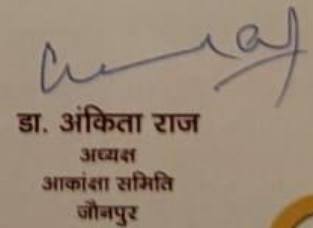 डा. अंकिता राज
अध्यक्ष
आकांक्षा समिति
जौनपुर